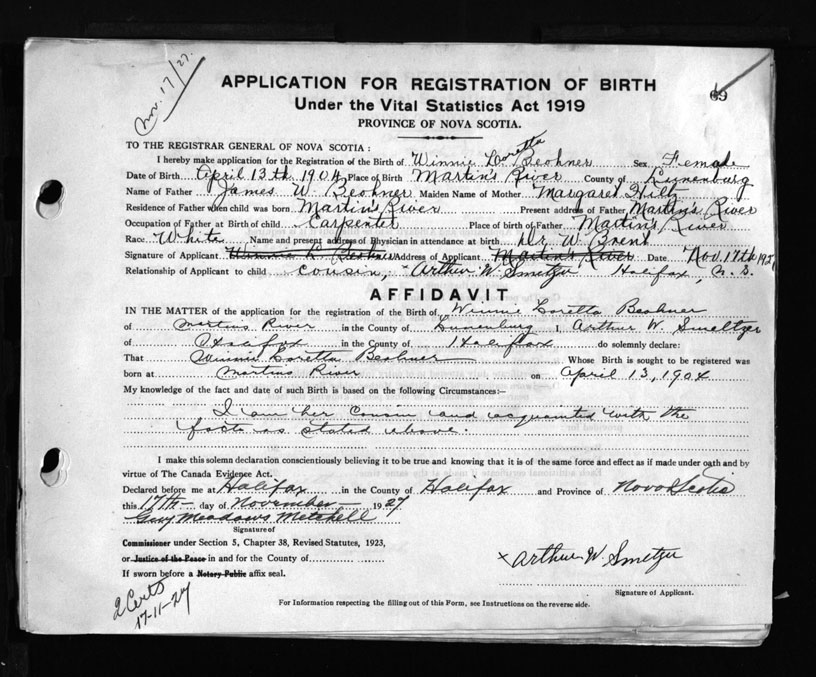 Nov. 17/27.
APPLICATION FOR REGISTRATION OF BIRTH
69
Under the Vital Statistics Act 1919
PROVINCE OF NOVA SCOTIA.
TO THE REGISTRAR GENERAL OF NOVA SCOTIA :
I hereby make application for the Registration of the Birth of Winnie Loretta Beohner Sex Female
Date of Birth April 13th 1904 Place of Birth Martin's River County of Lunenburg
Name of Father James W. Beohner Maiden Name of Mother Margaret Hilt
Residence of Father when child was born Martin's River Present address of Father Martin's River
Occupation of Father at Birth of child Carpenter Place of birth of Father Martin's River
Race White Name and present address of Physician in attendance at birth Dr. W
Signature of Applicant Winnie L. Beohner Address of Applicant Martin's River Date Nov. 17th 1927
Relationship of Applicant to child cousin, Arthur W. Smeltzer Halifax, N. S.
AFFIDAVIT
IN THE MATTER of the application for the registration of the Birth of Winnie Loretta Beohner
of Martins River in the County of Lunenburg I, Arthur W. Smeltzer
of Halifax in the County of Halifax do solemnly declare:
That Winnie Loretta Beohner Whose Birth is sought to be registered was
born at Martins River on April 13, 1904
My knowledge of the fact and date of such Birth is based on the following Circumstances:—
I am her Cousin and acquainted with the
facts as stated above.
I make this solemn declaration conscientiously believing it to be true and knowing that it is of the same force and effect as if made under oath and by
virtue of The Canada Evidence Act.
Declared before me at Halifax in the County of Halifax and Province of Nova Scotia
this 17th day of November 1927
Guy Meadows Metchell
Signature of
Commissioner under Section 5, Chapter 38, Revised Statutes, 1923,
or Justice of the Peace in and for the County of
If sworn before a Notary Public affix seal.
x Arthur W. Smeltzer
Signature of Applicant.
2 Certs
17-11-27
For Information respecting the filling out of this Form, see Instructions on the reverse side.